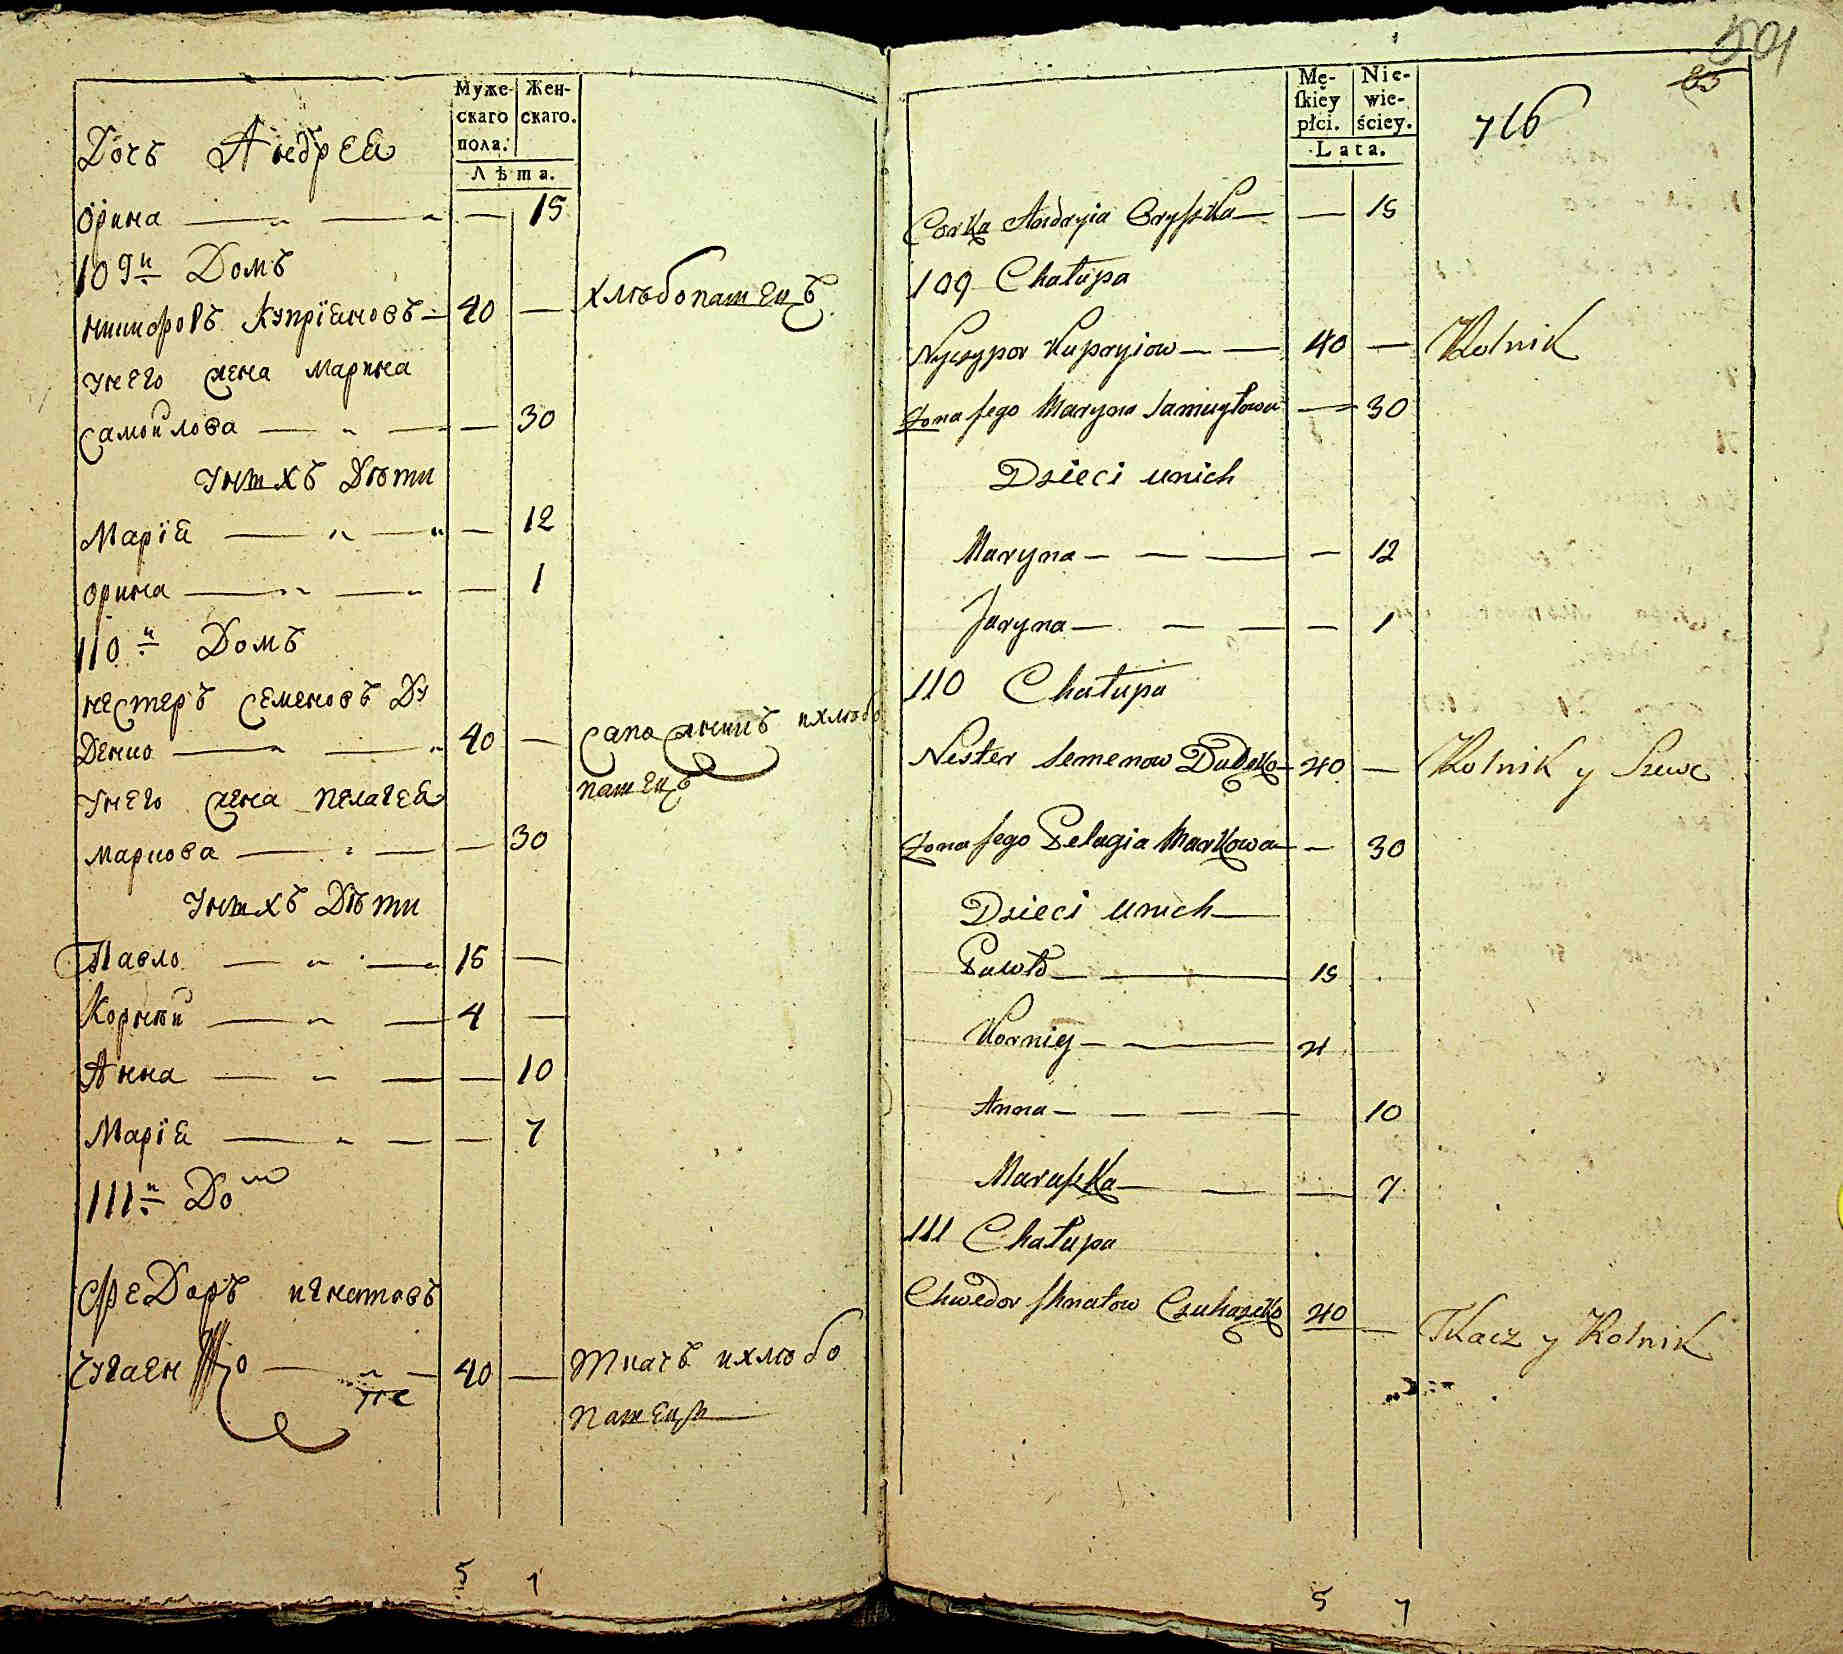 Муже-
скаго
пола.
Жен-
скаго.
Лѣта.
Дочъ Андрея
Орина — — — 15
109й Домъ
никифоръ Купріяновъ — 40 — хлѣбопашецъ
унего жена Марина
самойлова — — — 30
унихъ Дѣти
Марія — — — 12
орина — — — 1
110й Домъ
нестеръ семеновъ Ду
денко — — 40 — сапожникъ ихлѣбо
пашецъ
унего жена пелагея
маркова — — — 30
унихъ Дѣти
Павло — — 15 —
Корнѣй — — 4 —
Анна — — — 10
Марія — — — 7
111й Домъ
Федоръ игнатовъ
— — 40 — ткачъ ихлѣбо
пашецъ
5 7
501
85
716
Mę-
skiey
płci.
Nie-
wie-
ściey.
Lata.
Corka Andryia Oryszka — — 15
109 Chałupa
Nyczypor Kupryiow — — 40 — Rolnik
Żona Jego Maryna Samuyłowa — 30
Dzieci unich
Maryna — — — — 12
Jaryna — — — — 1
110 Chałupa
Nester Semenow Dudeko — 40 — Rolnik y Szewc
Żona Jego Pelagia Markowa — — 30
Dzieci unich —
Pawło — — 15
Korniey — — 4
Anna — — — — 10
Maruszka — — — 7
111 Chałupa
Chwedor Ihnatow 40 — Tkacz y Rolnik
5 7